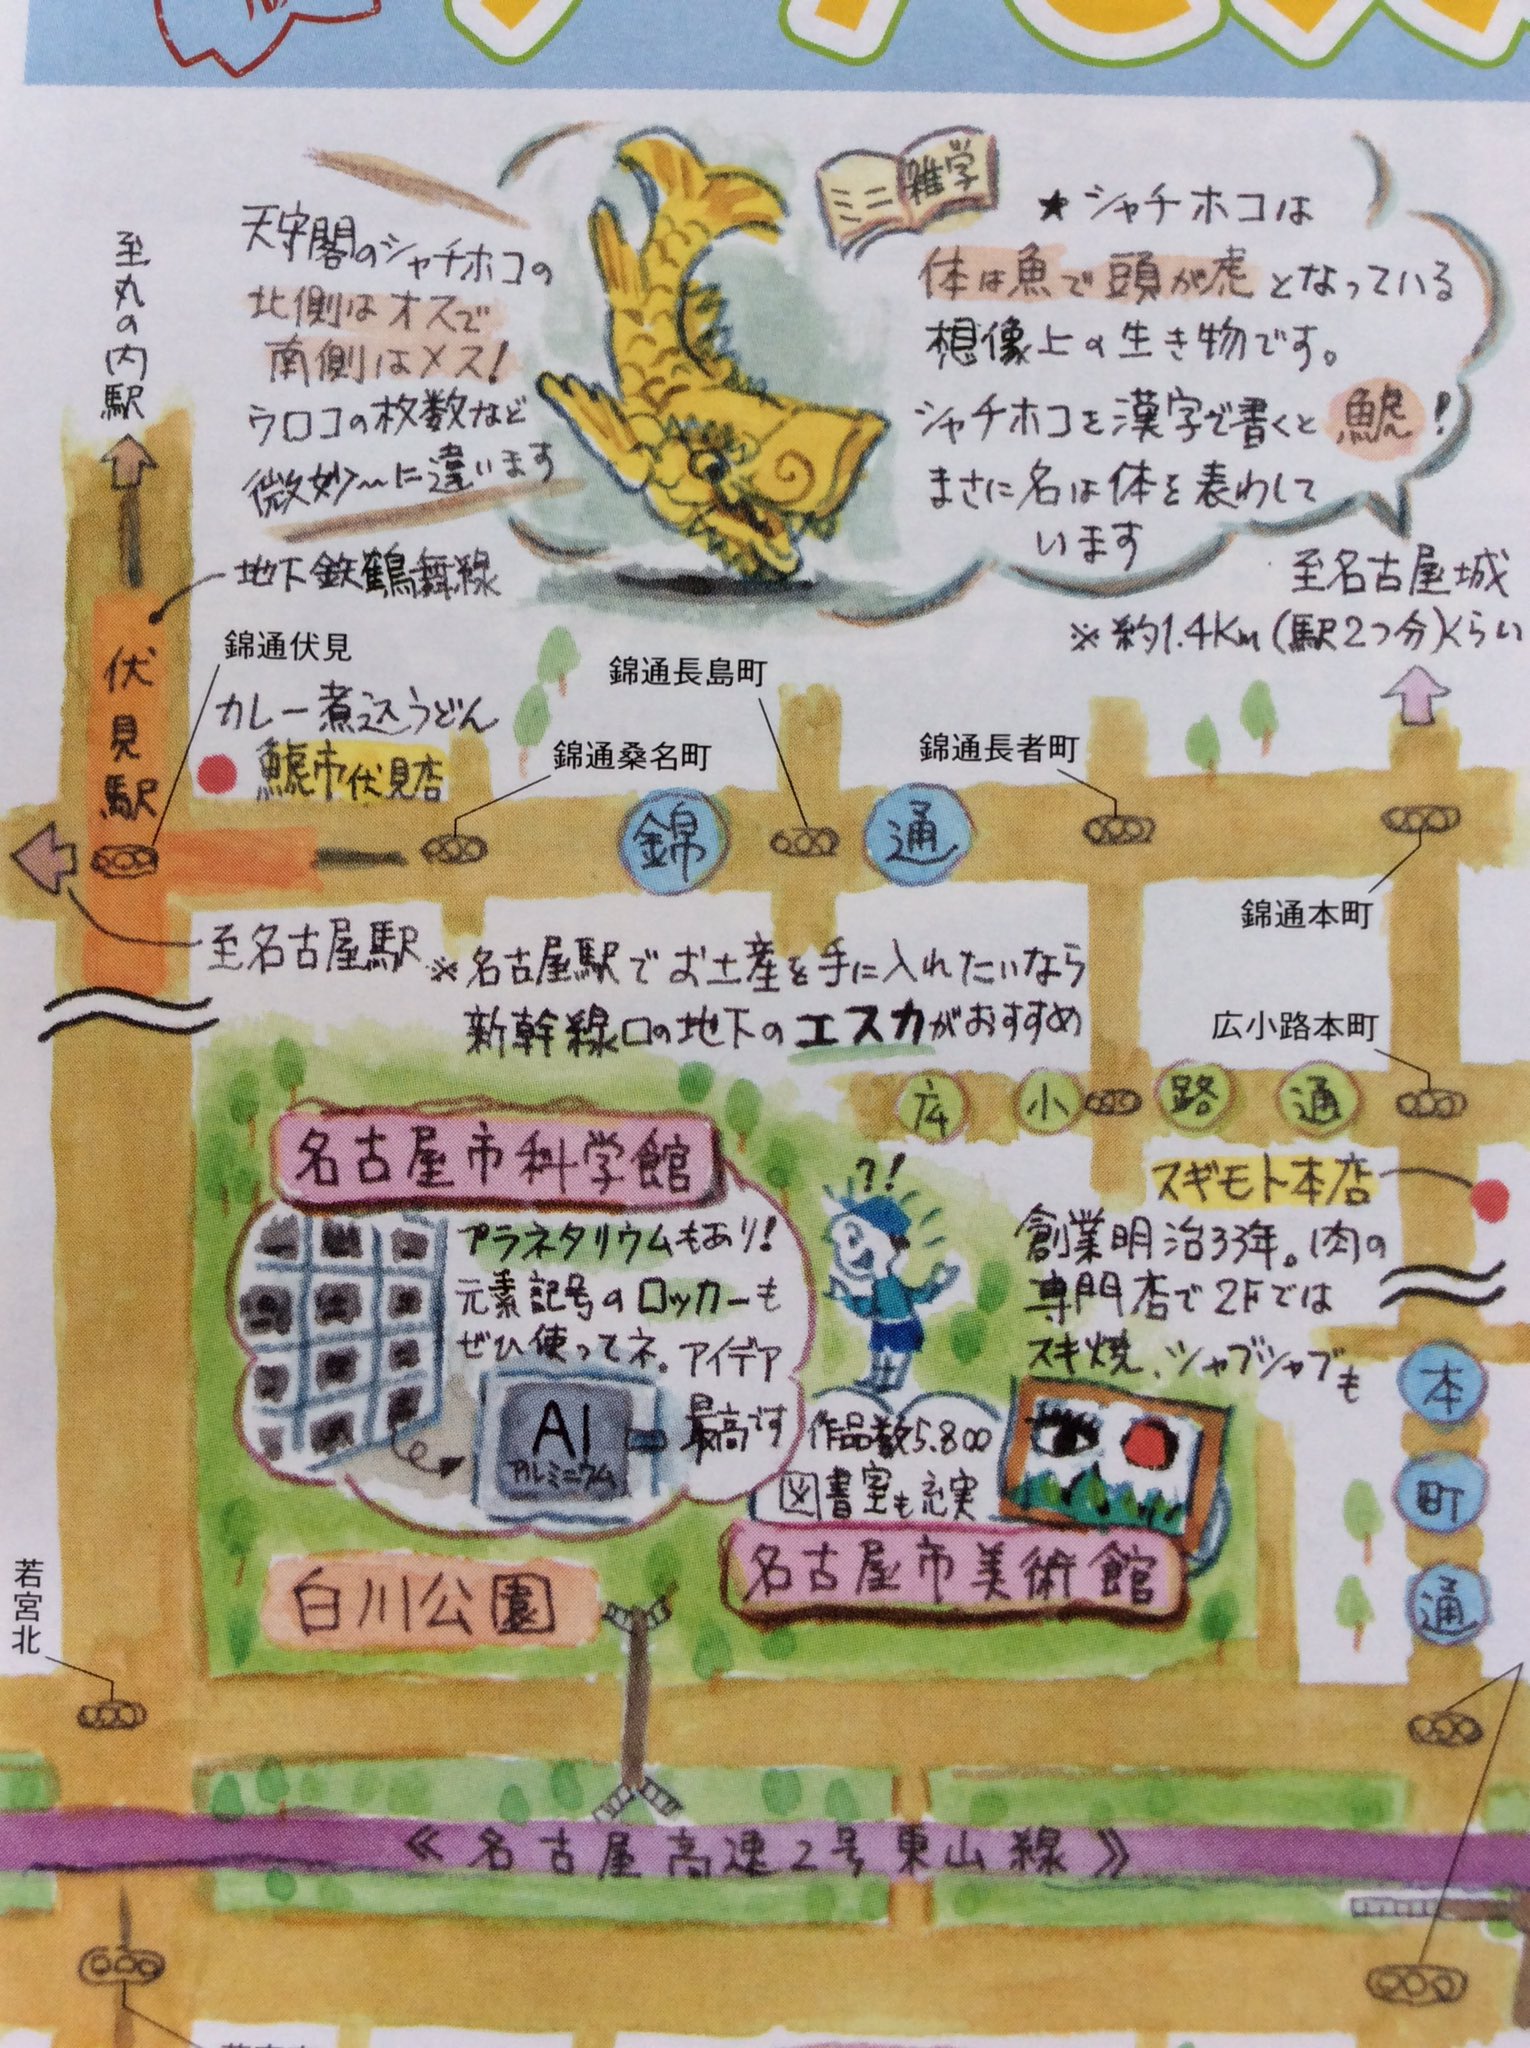 ミニ雑学
★シャチホコは
体は魚で頭が虎となっている
想像上の生き物です。
シャチホコを漢字で書くと鯱!
まさに名は体を表わして
います
天守閣のシャチホコの
北側はオスで
南側はメス!
ウロコの枚数など
微妙〜に違います
至丸の内駅
地下鉄鶴舞線
至名古屋城
※約1.4Km(駅2つ分)くらい
伏見駅
錦通伏見
カレー煮込うどん
鯱市伏見店
錦通長島町
錦通桑名町
錦通長者町
錦通
錦通本町
至名古屋駅
※名古屋駅でお土産を手に入れたいなら
新幹線口の地下のエスカがおすすめ
広小路本町
広小路通
名古屋市科学館
プラネタリウムもあり!
元素記号のロッカーも
ぜひ使ってネ。アイデア
最高です
Al
アルミニウム
?!
スギモト本店
創業明治33年。肉の
専門店で2Fでは
スキ焼、シャブシャブも
本町通
作品数5.800
図書室も充実
名古屋市美術館
白川公園
若宮北
《名古屋高速2号東山線》